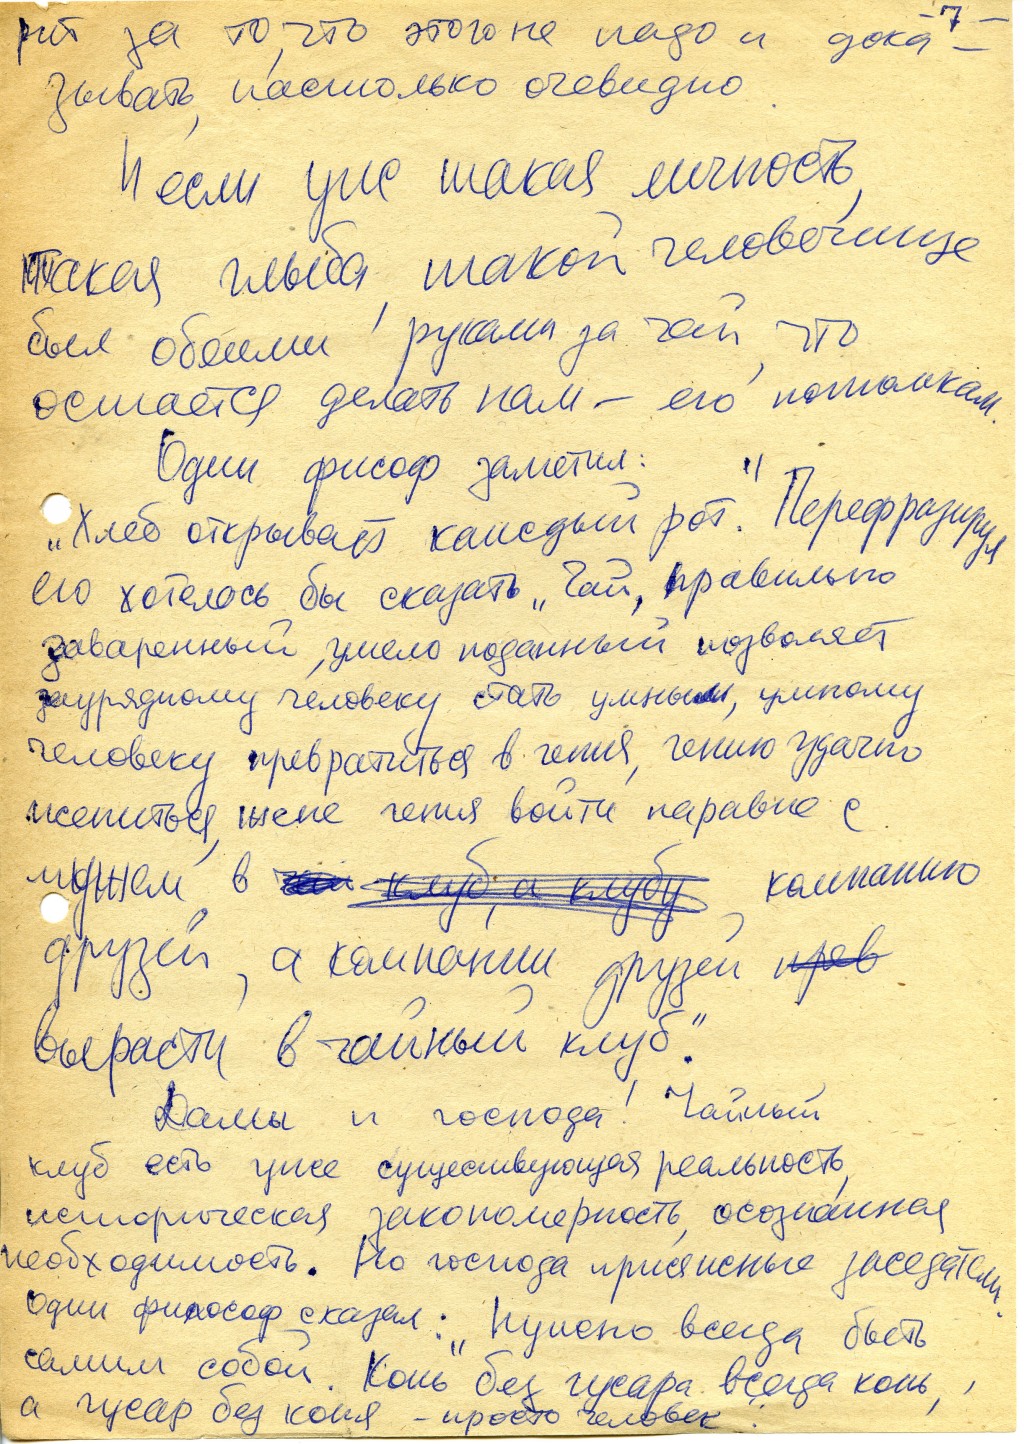 - 7 -
рит за то, что этого не надо и дока-
зывать, настолько очевидно.
И если уже такая личность,
такая глыба, такой человечище
был обеими руками за чай, что
остаётся делать нам – его потомкам.
Один фисоф заметил:
„Хлеб открывает каждый рот." Перефразируя
его хотелось бы сказать „Чай, правильно
заваренный, умело поданный позволяет
заурядному человеку стать умным, умному
человеку превратиться в гения, гению удачно
жениться, жене гения войти наравне с
мужем в клуб, а клубу компанию
друзей, а компании друзей прев
вырасти в чайный клуб".
Дамы и господа! Чайный
клуб есть уже существующая реальность,
историческая закономерность, осознанная
необходимость. Но господа присяжные заседатели.
Один философ сказал: „Нужно всегда быть
самим собой. Конь без гусара всегда конь,
а гусар без коня – просто человек".